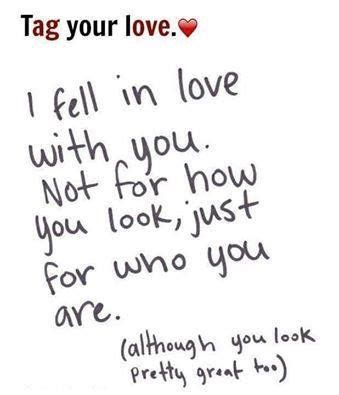 Tag your love.❤
I fell in love
with you.
Not for how
you look, just
for who you
are.
(although you look
pretty great too)